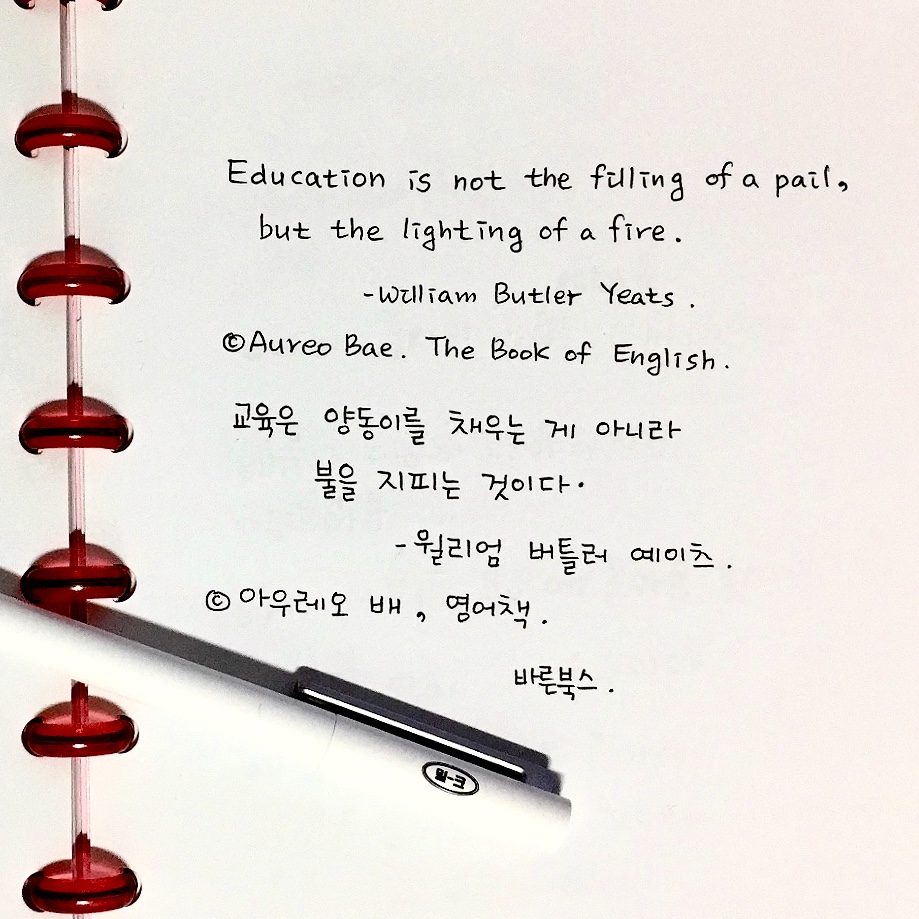 Education is not the filling of a pail,
but the lighting of a fire.
-William Butler Yeats.
©Aureo Bae. The Book of English.
교육은 양동이를 채우는 게 아니라
불을 지피는 것이다.
-윌리엄 버틀러 예이츠.
© 아우레오 배, 영어책.
바른북스.
밀-크